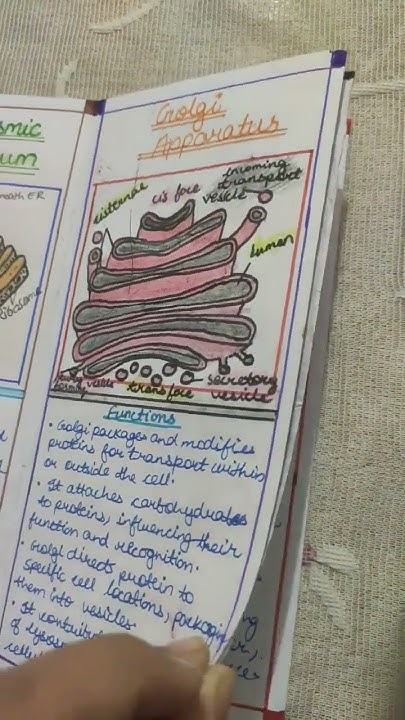 smic
um
Golgi
Apparatus
mooth ER
Ribosome
cisternae
cis face
incoming
transport
vesicle
lumen
newly
forming vesicle
trans face
secretory
vesicle
Functions
• Golgi packages and modifies
proteins for transport within
or outside the cell.
• It attaches carbohydrates
to proteins, influencing their
function and recognition.
• Golgi directs protein to
specific cell locations, packagin
them into vesicles.
• It contribut
of lysoso
cellu